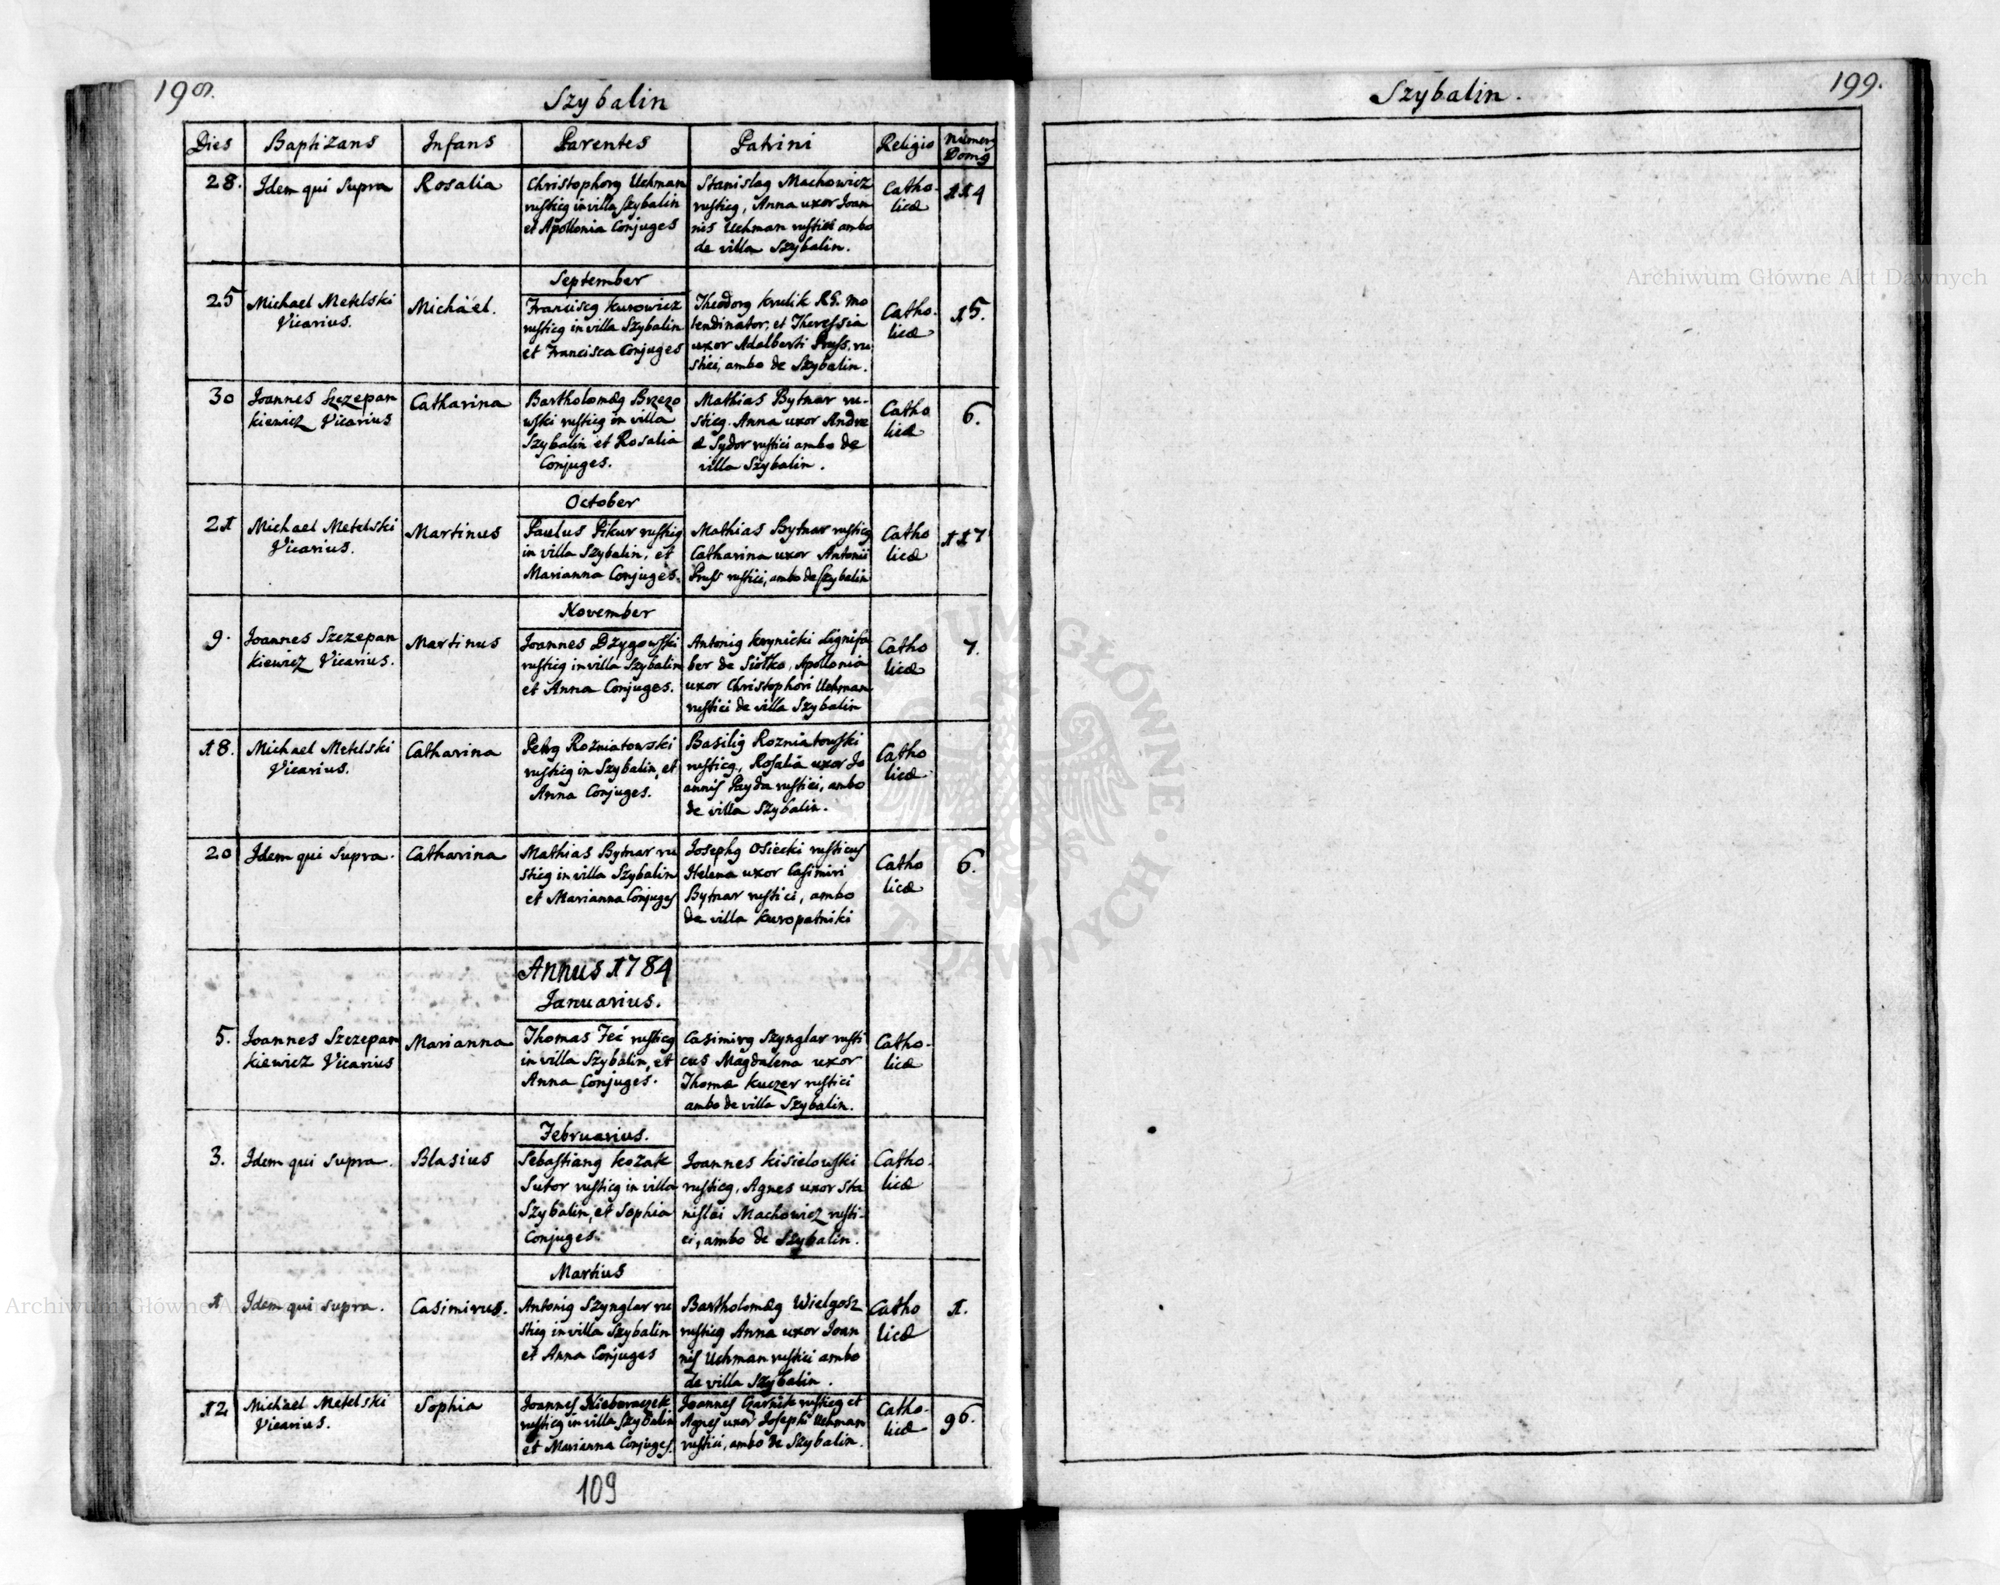 198.
Szybalin
Dies Baptizans Infans Parentes Patrini Religio Numerg Domg
28. Idem qui Supra Rosalia
Christophorg Uchman
rusticg in villa Szybalin
et Apollonia Conjuges
Stanislag Machowicz
rusticg, Anna uxor Joan
nis Uchman rustici ambo
de villa Szybalin.
Catho-
licæ
114
September
25 Michael Metelski
Vicarius.
Michäel.
Franciscg Kurowicz
rusticg in villa Szybalin
et Francisca Conjuges
Theodorg Krulik RG. Mo
lendinator, et Theressia
uxor Adalberti Pruss. ru
stici, ambo de Szybalin.
Catho-
licæ
15.
30 Joannes Szczepan
kiewicz Vicarius
Catharina
Bartholomæg Brzezo
wski rusticg in villa
Szybalin et Rosalia
Conjuges.
Mathias Bytnar ru-
sticg. Anna uxor Andre
æ Sydor rustici ambo de
villa Szybalin.
Catho
licæ
6.
October
21 Michael Metelski
Vicarius.
Martinus
Paulus Pikur rusticg
in villa Szybalin, et
Marianna Conjuges.
Mathias Bytnar rusticg
Catharina uxor Antonii
Pruss rustici, ambo de Szybalin
Catho
licæ
117
November
9. Joannes Szczepan
kiewicz Vicarius.
Martinus
Joannes Dzygowski
rusticg in villa Szybalin
et Anna Conjuges.
Antonig Krynicki Lignifa
ber de Siołko, Apollonia
uxor Christophori Uchman
rustici de villa Szybalin
Catho
licæ
7.
18. Michael Metelski
Vicarius.
Catharina
Petrg Rozniatowski
rusticg in Szybalin, et
Anna Conjuges.
Basilig Rozniatowski
rusticg, Rosalia uxor Jo
annis Payda rustici, ambo
de villa Szybalin.
Catho
licæ
20 Idem qui Supra. Catharina
Mathias Bytnar ru
sticg in villa Szybalin
et Marianna Conjuges
Josephg Osiecki rusticus
Helena uxor Casimiri
Bytnar rustici, ambo
de villa Kuropatniki
Catho
licæ
6.
Annus 1784
Januarius.
5. Joannes Szczepan
kiewicz Vicarius
Marianna
Thomas Feć rusticg
in villa Szybalin, et
Anna Conjuges.
Casimirg Szynglar rusti
cus Magdalena uxor
Thomæ Kuczer rustici
ambo de villa Szybalin.
Catho-
licæ
Februarius.
3. Idem qui Supra. Blasius
Sebastiang Kozak
Sutor rusticg in villa
Szybalin, et Sophia
Conjuges.
Joannes Kisielowski
rusticg, Agnes uxor Sta
nislai Machowicz rusti-
ci, ambo de Szybalin.
Catho-
licæ
Martius
1 Idem qui supra. Casimirus.
Antonig Szynglar ru
sticg in villa Szybalin
et Anna Conjuges
Bartholomæg Wielgosz
rusticg Anna uxor Joan
nis Uchman rustici ambo
de villa Szybalin.
Catho
licæ
1.
12 Michael Metelski
Vicarius.
Sophia
Joannes Nieboraczek
rusticg in villa Szybalin
et Marianna Conjuges.
Joannes Czarnik rusticg et
Agnes uxor Josephi Uchman
rustici, ambo de Szybalin.
Catho-
licæ
96.
109
Szybalin.
199.
Archiwum Główne Akt Dawnych